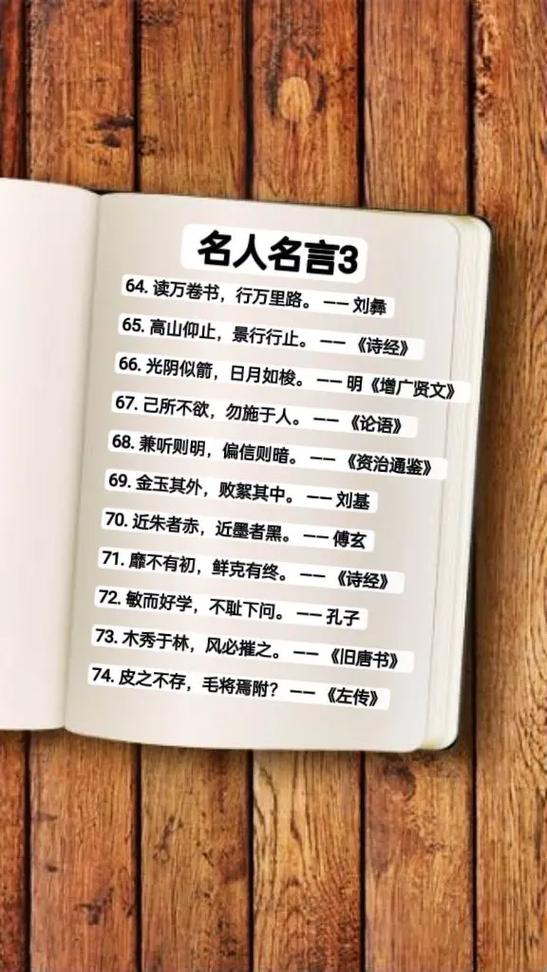 名人名言3
64. 读万卷书，行万里路。 —— 刘彝
65. 高山仰止，景行行止。 —— 《诗经》
66. 光阴似箭，日月如梭。 —— 明《增广贤文》
67. 己所不欲，勿施于人。 —— 《论语》
68. 兼听则明，偏信则暗。 —— 《资治通鉴》
69. 金玉其外，败絮其中。 —— 刘基
70. 近朱者赤，近墨者黑。 —— 傅玄
71. 靡不有初，鲜克有终。 —— 《诗经》
72. 敏而好学，不耻下问。 —— 孔子
73. 木秀于林，风必摧之。 —— 《旧唐书》
74. 皮之不存，毛将焉附？ —— 《左传》